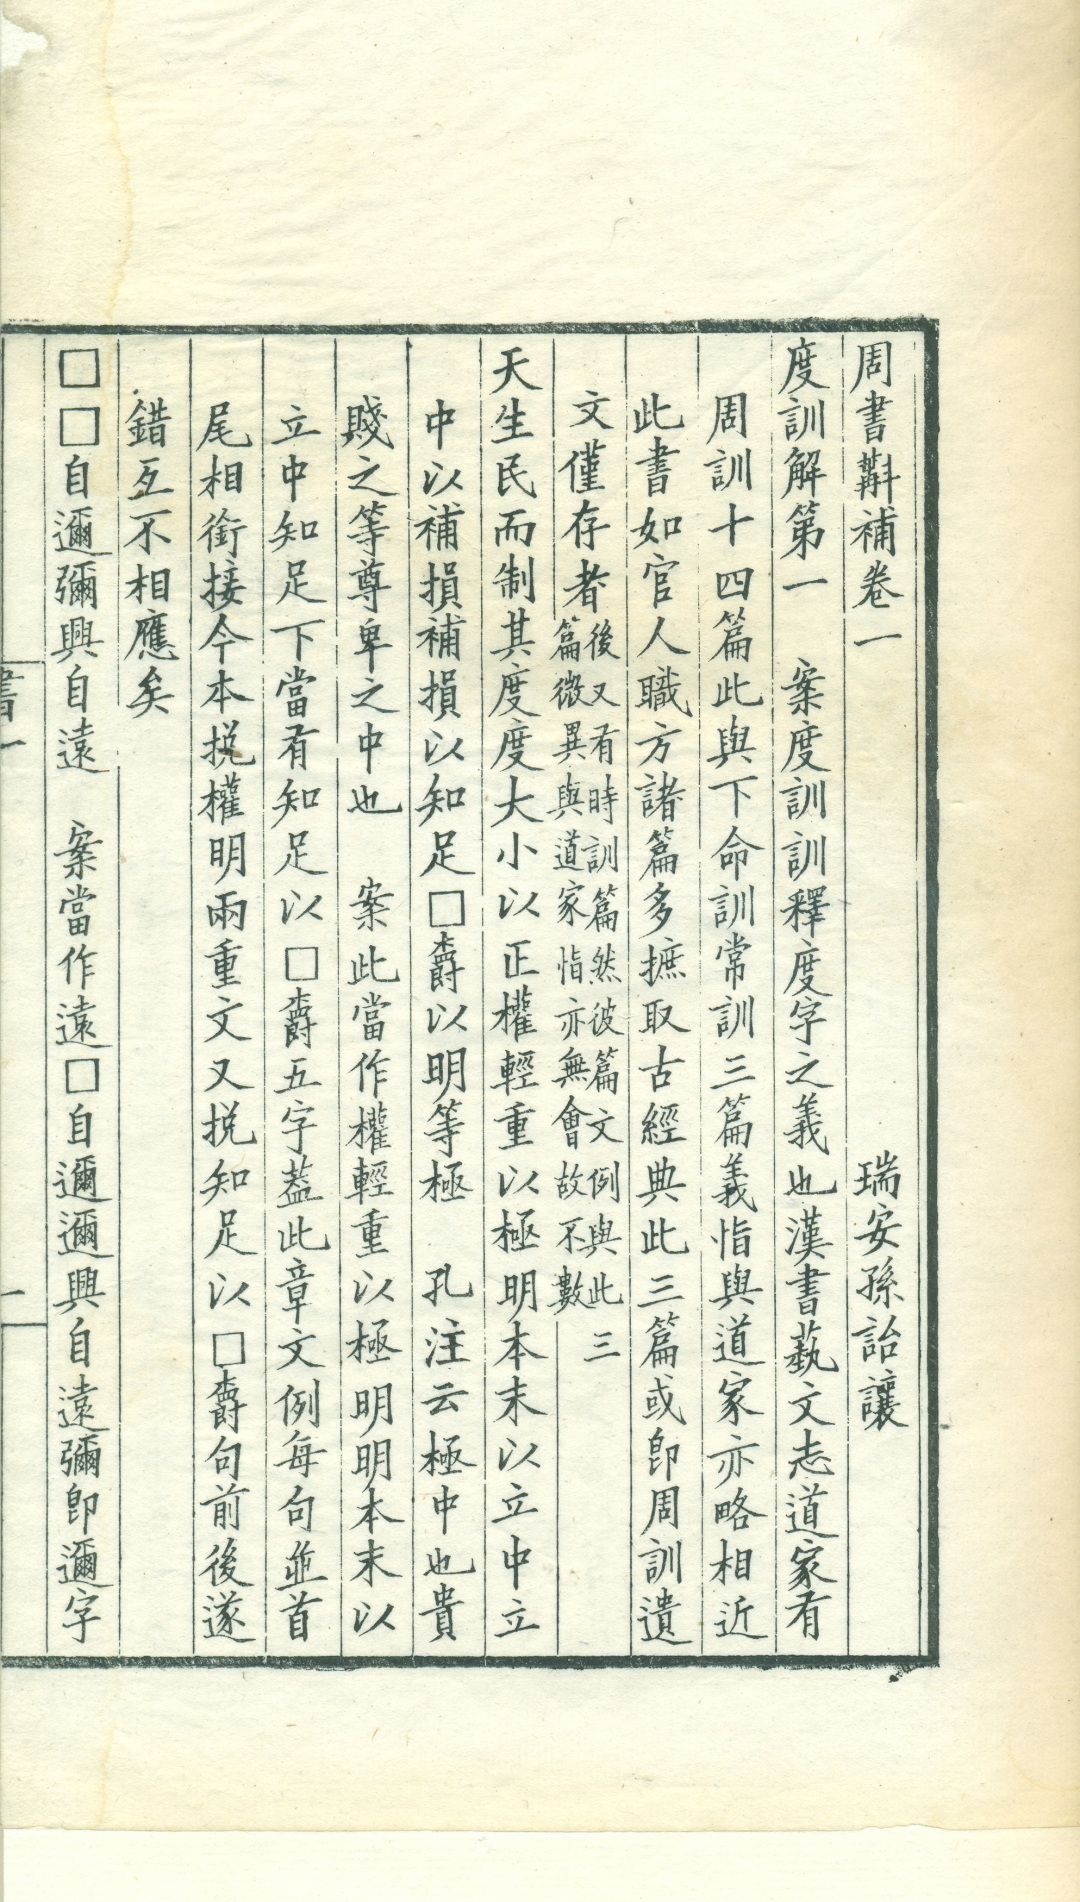 周書斠補卷一　瑞安孫詒讓
度訓解第一　案度訓訓釋度字之義也漢書藝文志道家有
周訓十四篇此與下命訓常訓三篇義恉與道家亦略相近
此書如官人職方諸篇多摭取古經典此三篇或卽周訓遺
文僅存者後又有時訓篇然彼篇文例與此三
篇微異與道家恉亦無會故不數
天生民而制其度度大小以正權輕重以極明本末以立中立
中以補損補損以知足□爵以明等極　孔注云極中也貴
賤之等尊卑之中也　案此當作權輕重以極明明本末以
立中知足下當有知足以□爵五字葢此章文例每句並首
尾相銜接今本挩權明兩重文又挩知足以□爵句前後遂
錯互不相應矣
□□自邇彌興自遠　案當作遠□自邇邇興自遠彌卽邇字
書一
一